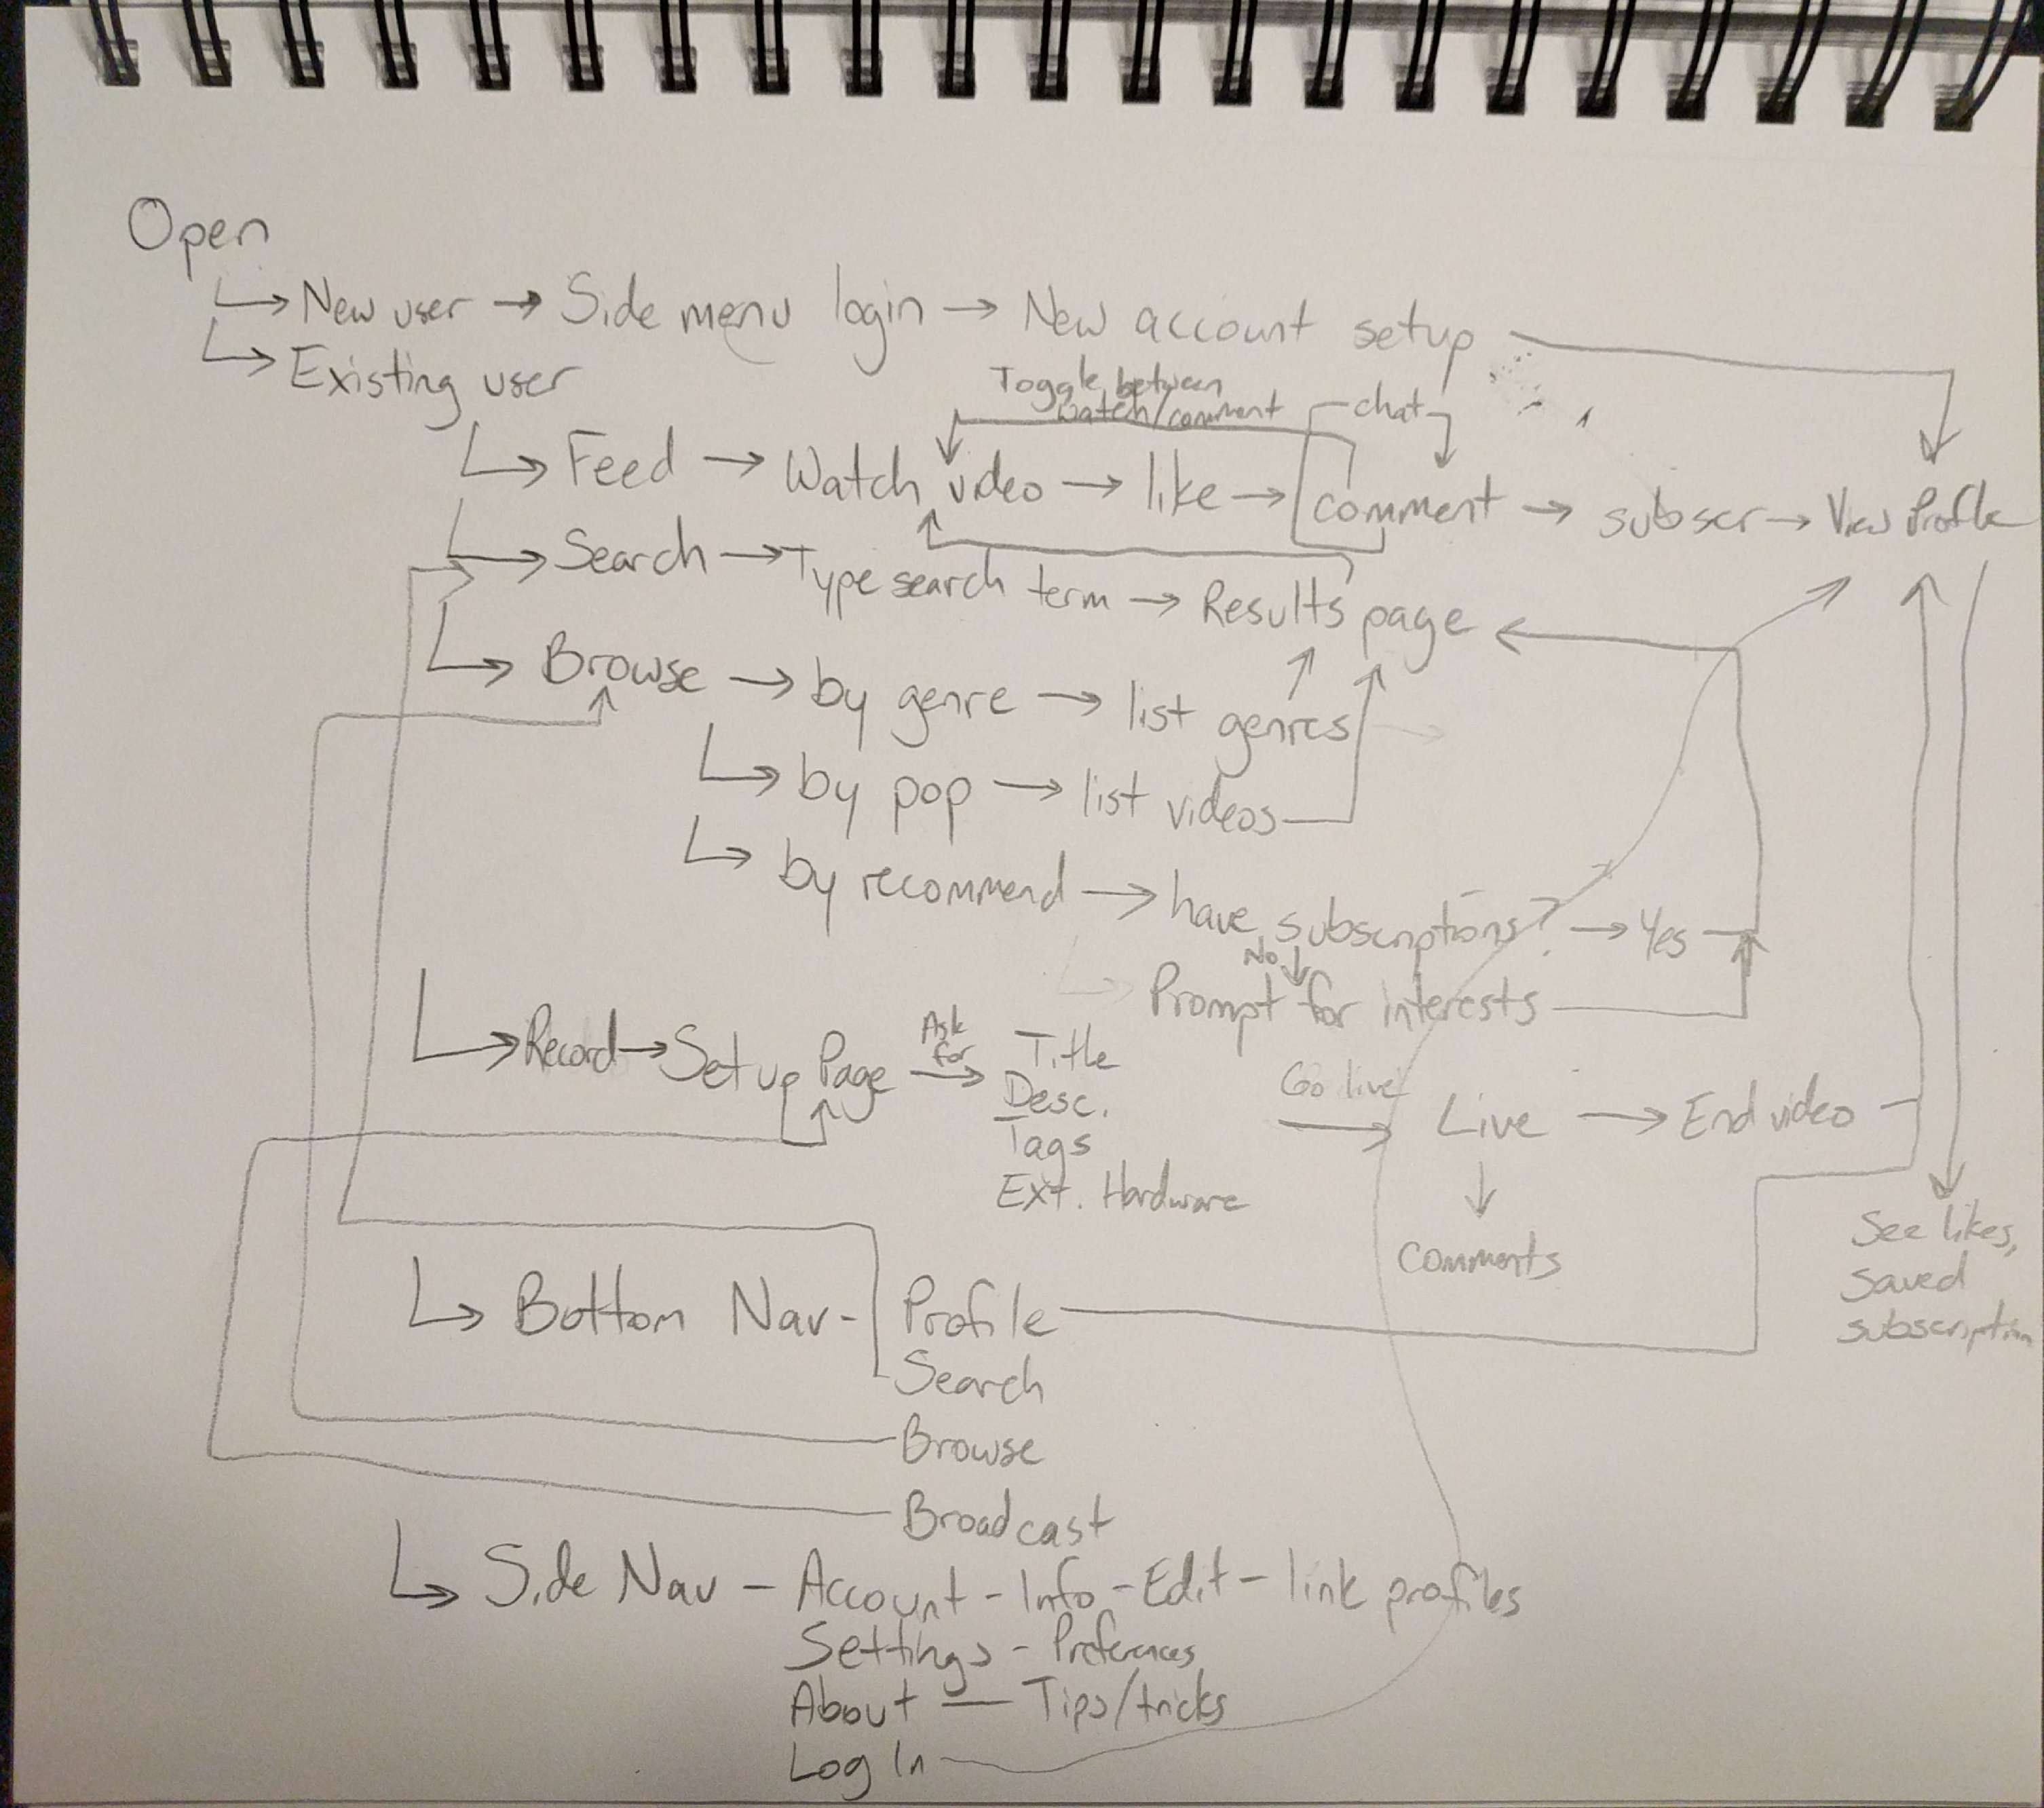 Open
New user → Side menu login → New account setup
Existing user
Toggle between
watch/comment
chat
Feed → Watch video → like → comment → subscr → View Profile
Search → Type search term → Results page
Browse → by genre → list genres
by pop → list videos
by recommend → have subscriptions? → Yes
No
Prompt for interests
Record → Set up Page
Ask
for
Title
Desc.
Tags
Ext. Hardware
Go live
Live → End video
Comments
See likes,
saved
subscription
Bottom Nav - Profile
Search
Browse
Broadcast
Side Nav - Account - Info - Edit - link profiles
Settings - Preferences
About - Tips/tricks
Log In